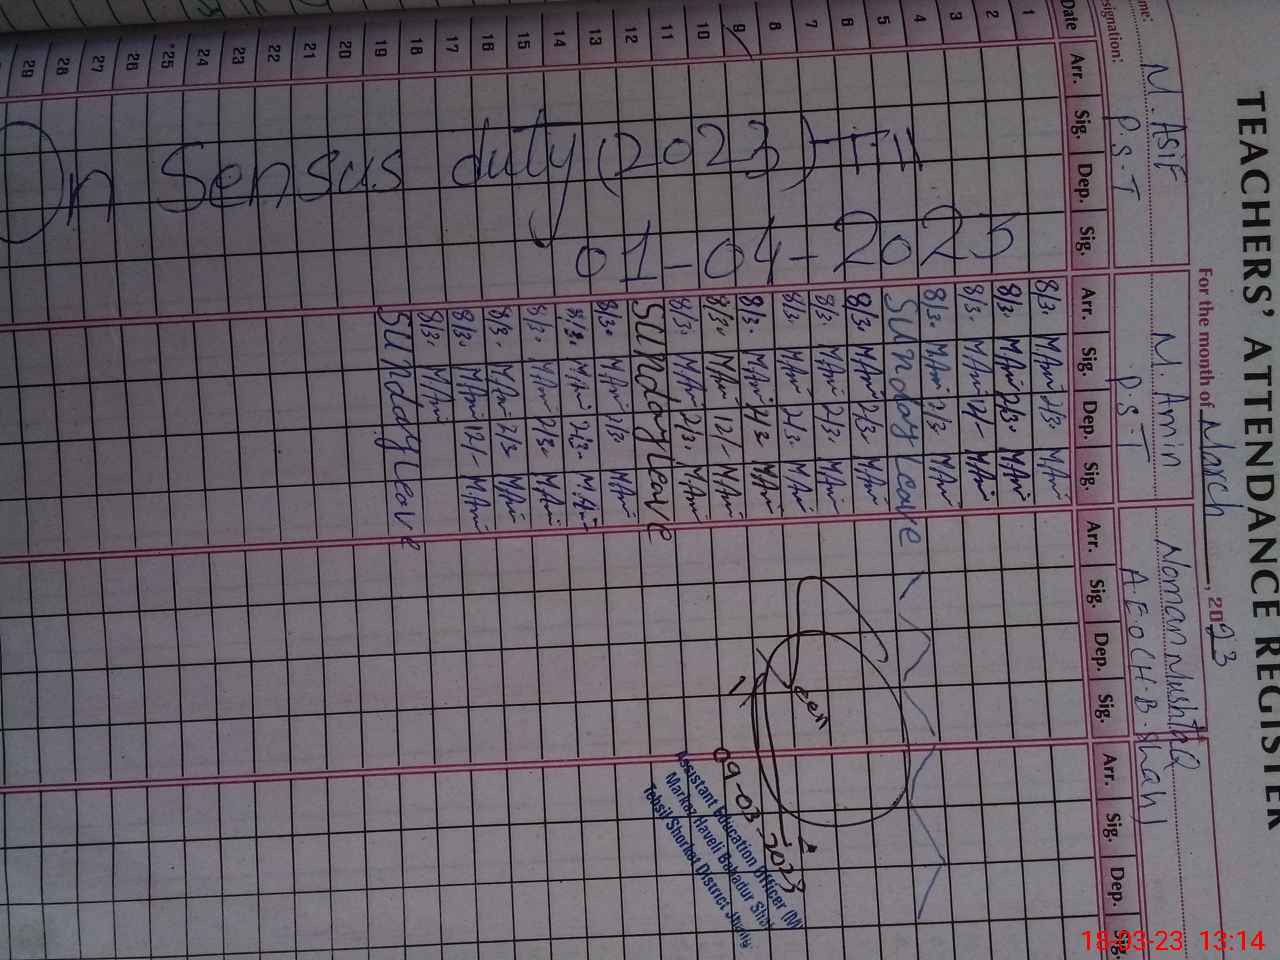 TEACHERS' ATTENDANCE REGISTER
For the month of March, 2023
me: M. Asif M. Amin Noman Mushtaq
esignation: P.S.T P.S.T A.E.O (H.B.Shah)
Date Arr. Sig. Dep. Sig. Arr. Sig. Dep. Sig. Arr. Sig. Dep. Sig. Arr. Sig. Dep. Sig.
1 8/3. M Amin 2/3 M Amin
2 8/3. M Amin 2/3. M Amin
3 8/3. M Amin 12/- M Amin
4 8/3. M Amin 2/3 M Amin
5 Sunday Leave
6 8/3. M Amin 2/3 M Amin
7 8/3. M Amin 2/3. M Amin
8 8/3. M Amin 2/3. M Amin
9 8/3. M Amin 2/3 M Amin
10 8/3. M Amin 12/- M Amin
11 8/3. M Amin 2/3. M Amin
12 Sunday leave
13 8/3. M Amin 2/3 M Amin
14 8/3. M Amin 2/3. M Amin
15 8/3. M Amin 2/3. M Amin
16 8/3. M Amin 2/3 M Amin
17 8/3. M Amin 12/- M Amin
18 8/3. M Amin
19 Sunday leave
20
21
22
23
24
25
26
27
28
29
On Sensus duty (2023) Till
01-04-2023
Seen
09-03-2023
Assistant Education Officer (M)
Markaz Haveli Bahadur Shah
Tehsil Shorkot District Jhang
18-03-23 13:14